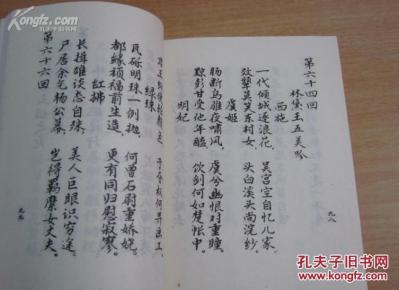 第六十四回
林黛玉五美吟
西施
一代倾城逐浪花，吴宫空自忆儿家。
效颦莫笑东村女，头白溪头尚浣纱。
虞姬
肠断乌骓夜啸风，虞兮幽恨对重瞳。
黥彭甘受他年醢，饮剑何如楚帐中。
明妃
九八
绿珠
瓦砾明珠一例抛，何曾石尉重娇娆。
都缘顽福前生造，更有同归慰寂寥。
红拂
长揖雄谈态自殊，美人巨眼识穷途。
尸居余气杨公幕，岂得羁縻女丈夫。
第六十六回
九九